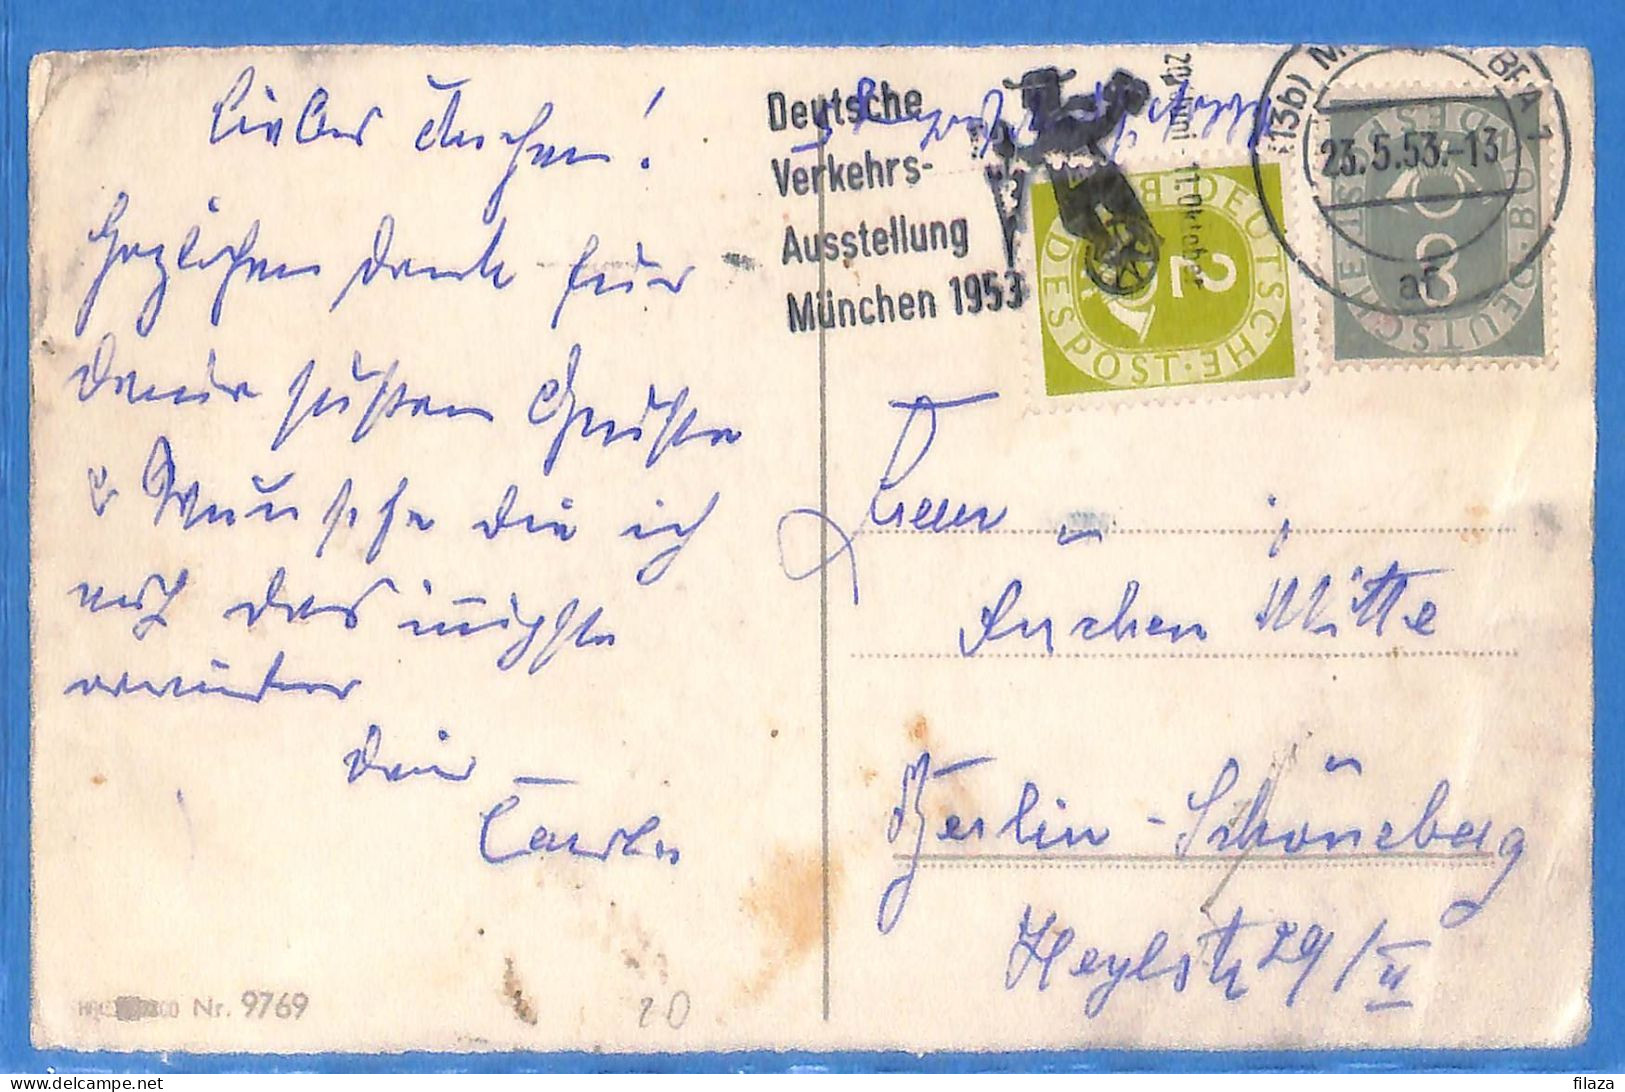 Liebes Änchen!
Herzlichen Dank für
deine süßen Grüße
& Wünsche die ich
auf das innigste
erwidere
Dein
Nr. 9769
20
Deutsche
Verkehrs-
Ausstellung
München 1953
20. Juni - 11. Oktober
(13b) M BPA 1
23.5.53.-13
af
DEUTSCHE BUNDESPOST
2
DEUTSCHE BUNDESPOST
8
Mitte
Berlin-Schöneberg
Heylstr 29/II
filaza